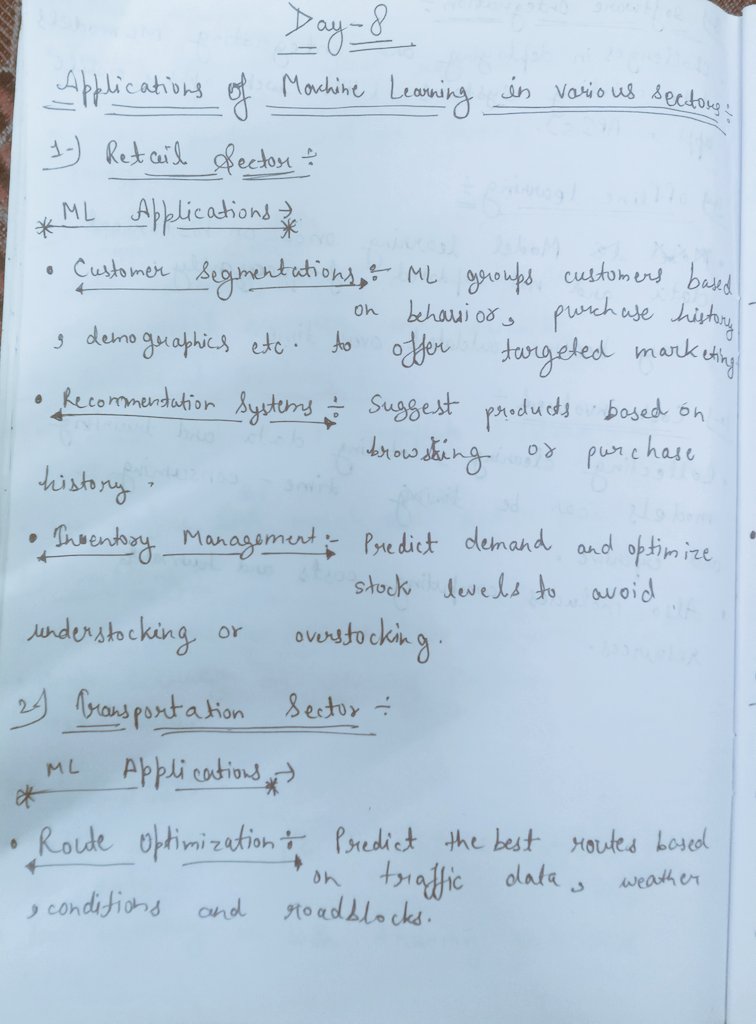 Day-8
Applications of Machine Learning in various sectors÷
1-) Retail Sector÷
ML Applications→
• Customer Segmentations÷ ML groups customers based
on behavior, purchase history
, demographics etc. to offer targeted marketing
• Recommentation Systems÷ Suggest products based on
browsing or purchase
history.
• Inventory Management:- Predict demand and optimize
stock levels to avoid
understocking or overstocking.
2-) Transportation Sector÷
ML Applications→
• Route Optimization÷ Predict the best routes based
on traffic data, weather
, conditions and roadblocks.